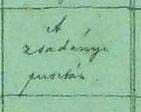 A
zsadányi
pusztán